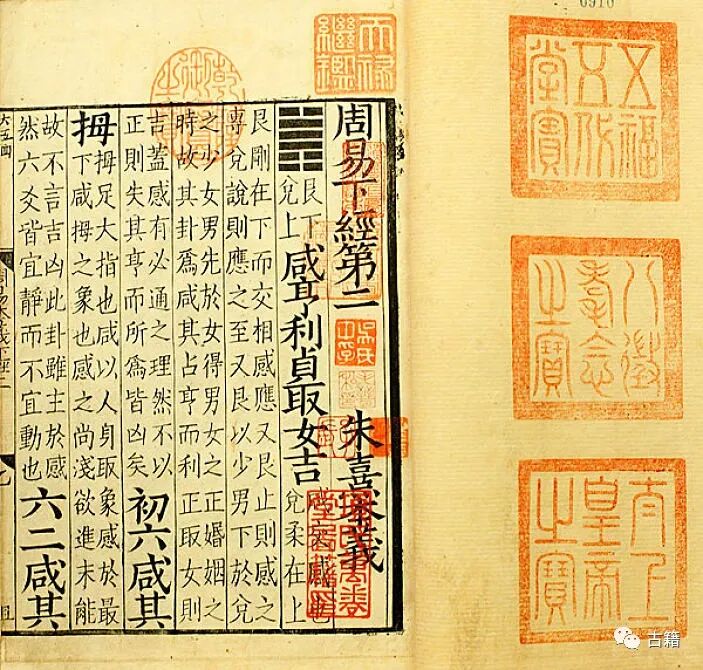 五福
五代
堂寶
八徵
耄念
之寶
太上
皇帝
之寶
天祿
繼鑑
周易下經第二 朱熹本義
艮下
兌上
咸亨利貞取女吉
咸交感也
兌柔在上
艮剛在下而交相感應又艮止則感之
專兌說則應之至又艮以少男下於兌
之少女男先於女得男女之正婚姻之
時故其卦爲咸其占亨而利正取女則
吉蓋感有必通之理然不以
正則失其亨而所爲皆凶矣
初六咸其
拇
拇足大指也咸以人身取象感於最
下咸拇之象也感之尚淺欲進未能
故不言吉凶此卦雖主於感
然六爻皆宜靜而不宜動也
六二咸其
古籍